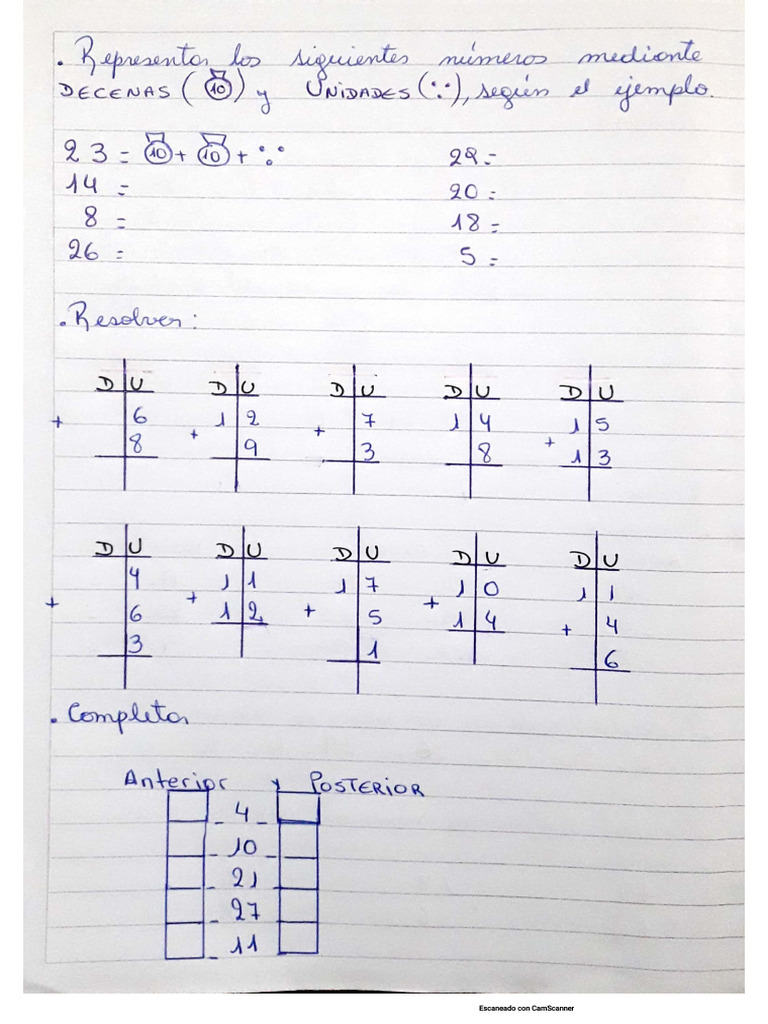 . Representar los siguientes números mediante
DECENAS (10) y UNIDADES (∵), según el ejemplo.
23 = 10 + 10 + ∵ 22 =
14 = 20 =
8 = 18 =
26 = 5 =
. Resolver:
D U D U D U D U D U
+ 6 1 2 7 1 4 1 5
8 + 9 + 3 8 + 1 3
D U D U D U D U D U
4 1 1 1 7 1 0 1 1
+ 6 + 1 2 + 5 + 1 4 + 4
3 1 6
. Completar
Anterior y POSTERIOR
_ 4 _
_ 10 _
_ 21 _
_ 27
_ 11
Escaneado con CamScanner